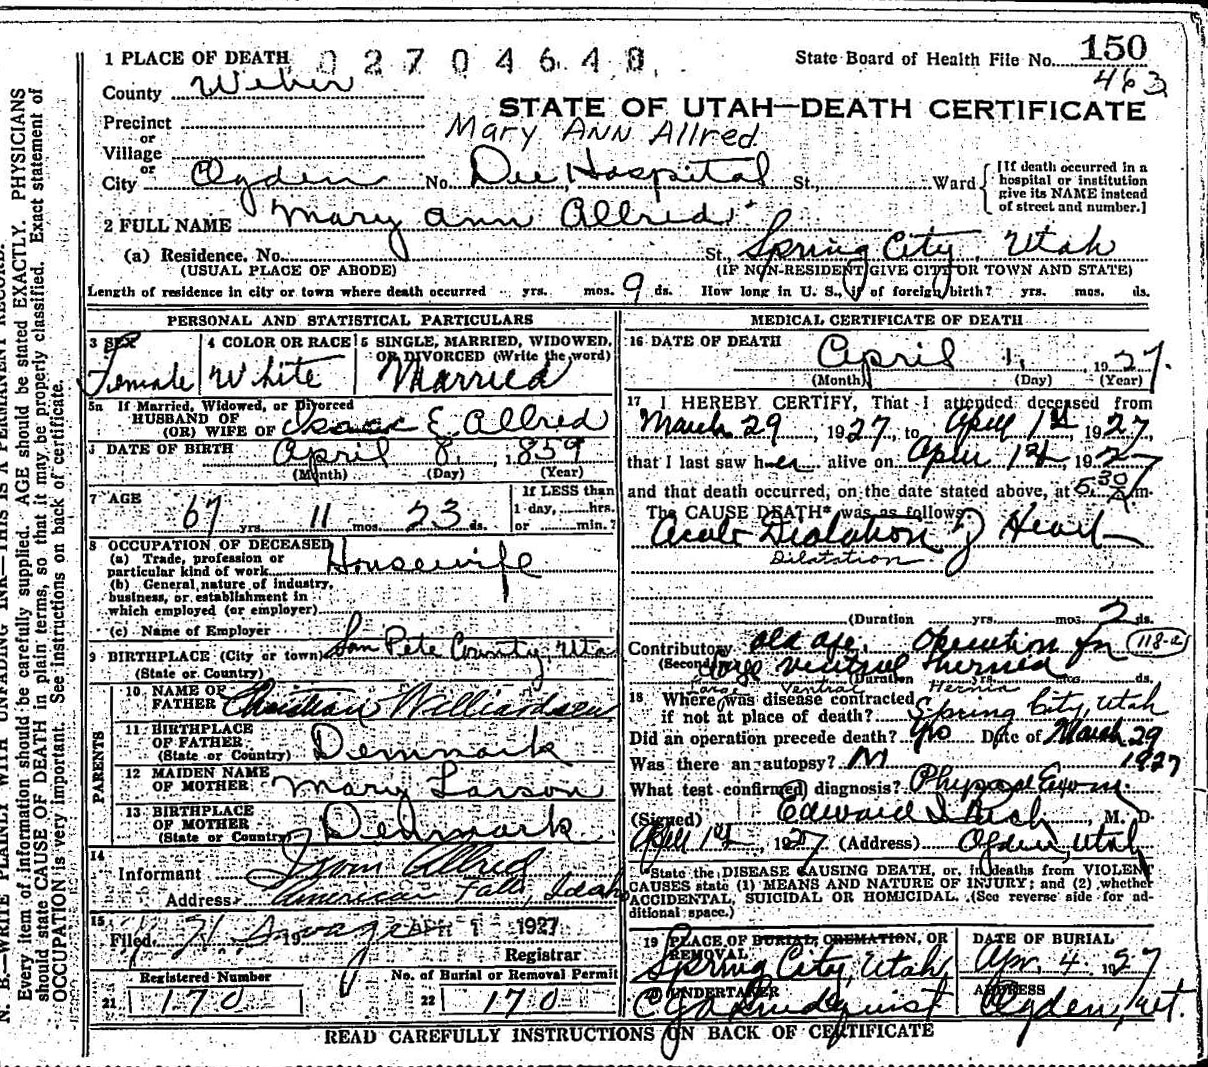 1 PLACE OF DEATH 02704648
State Board of Health File No. 150
463
County Weber
STATE OF UTAH—DEATH CERTIFICATE
Precinct
or
Mary Ann Allred
Village
or
City Ogden No. Dee Hospital St., Ward
[If death occurred in a
hospital or institution
give its NAME instead
of street and number.]
2 FULL NAME Mary Ann Allred
(a) Residence. No. St. Spring City, Utah
(USUAL PLACE OF ABODE) (IF NON-RESIDENT GIVE CITY OR TOWN AND STATE)
Length of residence in city or town where death occurred yrs. mos. 9 ds. How long in U. S., if of foreign birth? yrs. mos. ds.
PERSONAL AND STATISTICAL PARTICULARS
3 SEX 4 COLOR OR RACE 5 SINGLE, MARRIED, WIDOWED,
OR DIVORCED (Write the word)
Female White Married
5a If Married, Widowed, or Divorced
HUSBAND OF
(OR) WIFE OF Isaac E. Allred
DATE OF BIRTH April 8, 1859
(Month) (Day) (Year)
7 AGE 67 yrs. 11 mos. 23 ds.
If LESS than
1 day, hrs.
or min.?
8 OCCUPATION OF DECEASED
(a) Trade, profession or
particular kind of work Housewife
(b) General nature of industry,
business, or establishment in
which employed (or employer)
(c) Name of Employer
9 BIRTHPLACE (City or town) San Pete County, Uta
(State or Country)
PARENTS
10 NAME OF
FATHER Christian Williardsen
11 BIRTHPLACE
OF FATHER
(State or Country) Denmark
12 MAIDEN NAME
OF MOTHER Mary Larson
13 BIRTHPLACE
OF MOTHER
(State or Country) Denmark
14
Informant Allred
Address American Falls, Idaho
15
Filed 19 APR 1 1927
Registrar
Registered Number No. of Burial or Removal Permit
21 170 22 170
MEDICAL CERTIFICATE OF DEATH
16 DATE OF DEATH April 1, 1927.
(Month) (Day) (Year)
17 I HEREBY CERTIFY, That I attended deceased from
March 29, 1927, to April 1st, 1927,
that I last saw her alive on April 1st, 1927
and that death occurred, on the date stated above, at 5:30 A m.
The CAUSE DEATH* was as follows:
Acute Dialation of Heart
Dilatation
(Duration yrs. mos. 2 ds.
Contributory old age, Operation for 118-a
(Secondary) large ventral Hernia
(Duration yrs. mos. ds.
Large Ventral Hernia
18 Where was disease contracted
if not at place of death? Spring City, Utah
Did an operation precede death? yes Date of March 29
1927
Was there an autopsy? No
What test confirmed diagnosis? Physical Exam.
(Signed) Edward I Rich, M. D.
April 1st, 1927 (Address) Ogden, Utah
*State the DISEASE CAUSING DEATH, or, in deaths from VIOLENT
CAUSES state (1) MEANS AND NATURE OF INJURY; and (2) whether
ACCIDENTAL, SUICIDAL OR HOMICIDAL. (See reverse side for ad-
ditional space.)
19 PLACE OF BURIAL, CREMATION, OR
REMOVAL
Spring City, Utah
DATE OF BURIAL
Apr. 4. 1927
20 UNDERTAKER
Lindquist
ADDRESS
Ogden, Ut.
READ CAREFULLY INSTRUCTIONS ON BACK OF CERTIFICATE
N. B.—WRITE PLAINLY WITH UNFADING INK—THIS IS A PERMANENT RECORD.
Every item of information should be carefully supplied. AGE should be stated EXACTLY. PHYSICIANS
should state CAUSE OF DEATH in plain terms, so that it may be properly classified. Exact statement of
OCCUPATION is very important. See instructions on back of certificate.